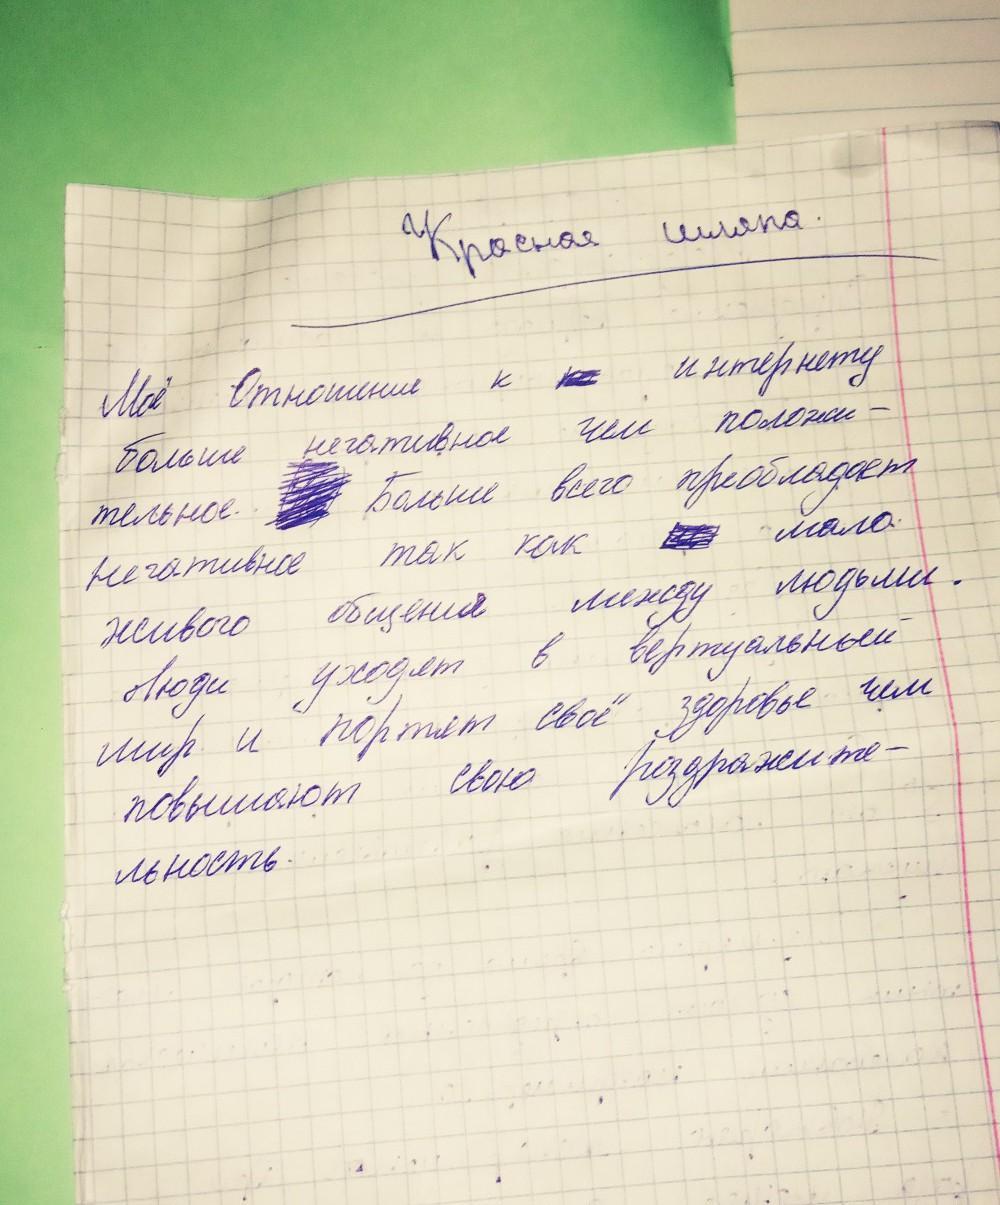 Красная шляпа.
Моё Отношение к интернету
больше негативное чем положи-
тельное. Больше всего преобладает
негативное так как мало
живого общения между людьми.
Люди уходят в вертуальный
мир и портят своё здоровье чем
повышают свою роздражите-
льность.